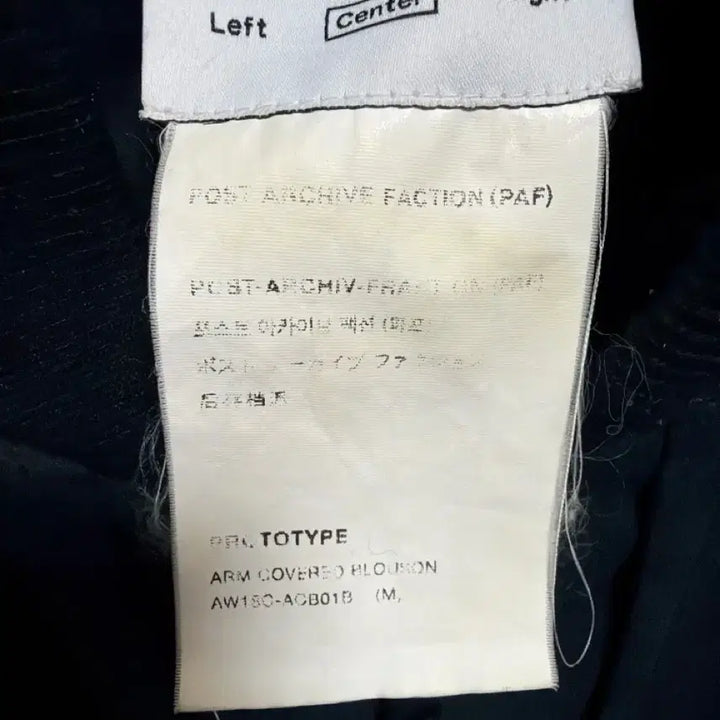 Left
Center
POST ARCHIVE FACTION (PAF)
POST-ARCHIV-FRAKTION (PAF)
포스트 아카이브 팩션 (파프)
ポスト アーカイブ ファクション
后存档派
PROTOTYPE
ARM COVERED BLOUSON
AW18C-ACB01B (M,